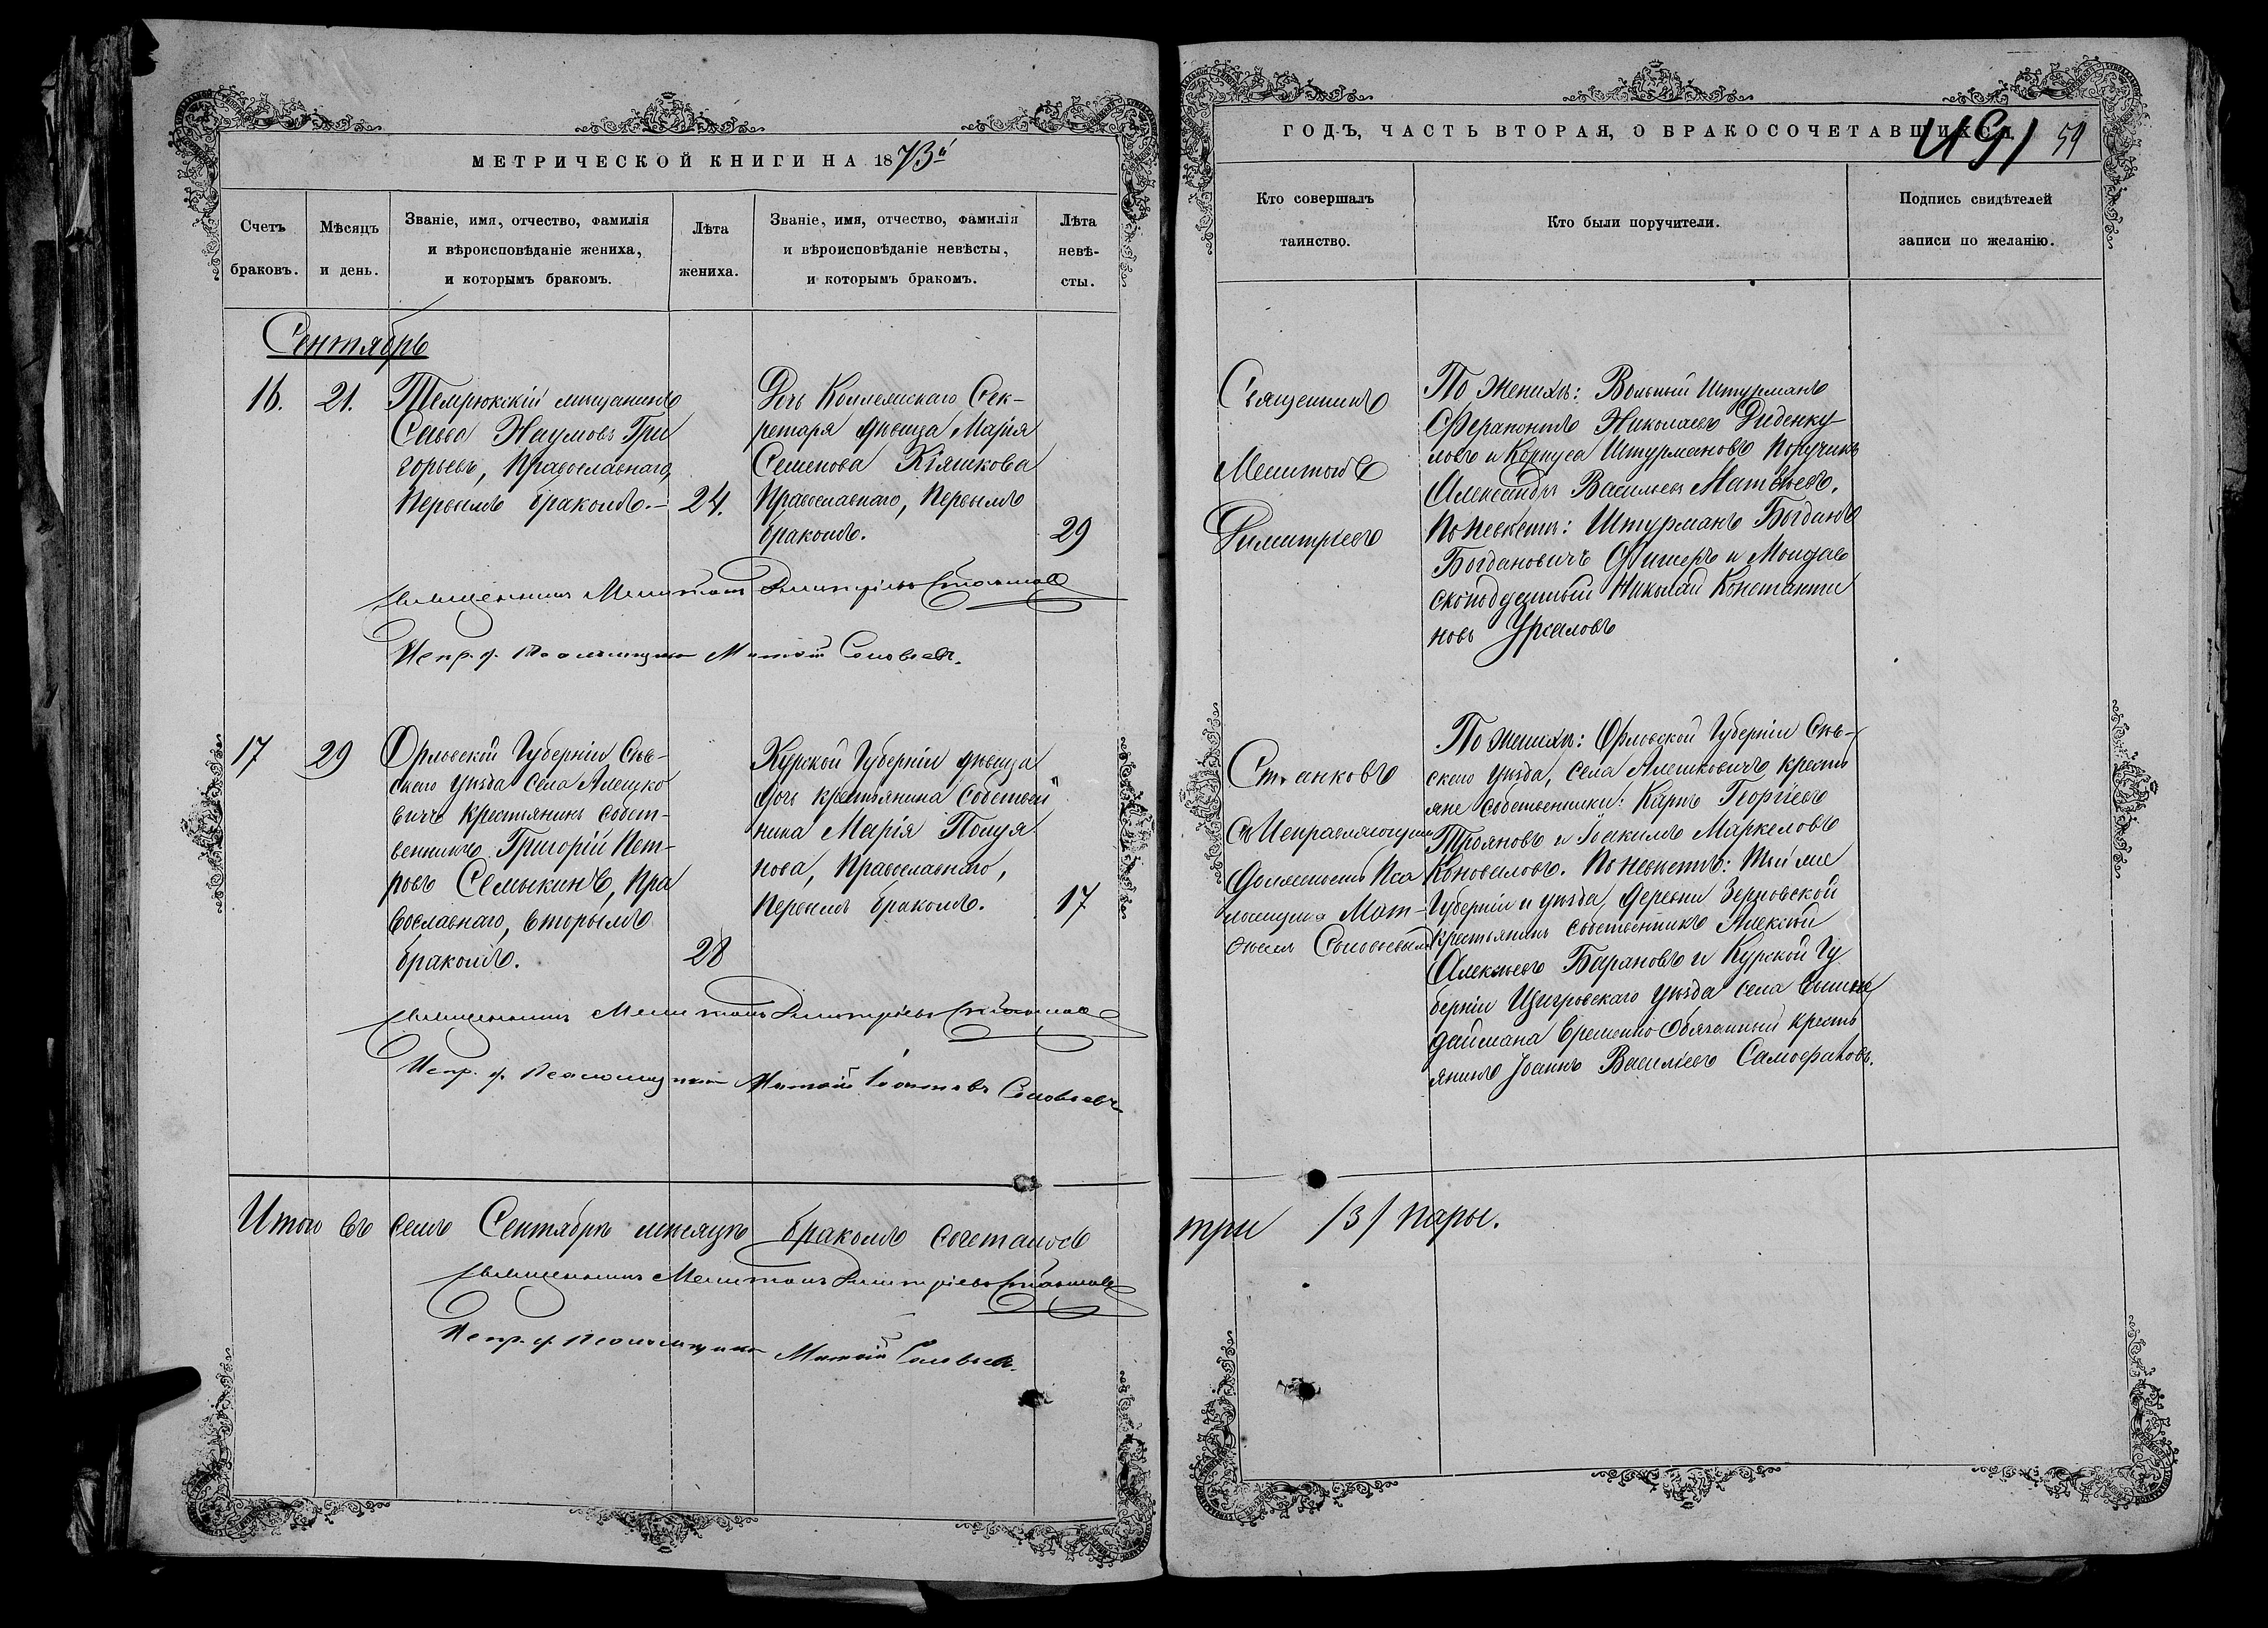 МЕТРИЧЕСКОЙ КНИГИ НА 1873й
Счетъ браковъ.
Мѣсяцъ и день.
Званіе, имя, отчество, фамилія
и вѣроисповѣданіе жениха,
и которымъ бракомъ.
Лѣта жениха.
Званіе, имя, отчество, фамилія
и вѣроисповѣданіе невѣсты,
и которымъ бракомъ.
Лѣта невѣ-
сты.
Сентябрь
16. 21.
Темрюкскій мѣщанинъ
Савва Наумовъ Гри
горьевъ, Православнаго,
Первымъ бракомъ.-
24.
Дочь Коллежскаго Сек-
ретаря дѣвица Марія
Семенова Кіяшкова
Православнаго, Первымъ
бракомъ.
29
Священникъ Мелитонъ Димитріевъ Станковъ
Испр. д. Псаломщика Матѳій Соловьевъ.
17 29
Орловской Губерніи Сѣв-
скаго уѣзда села Алешко
вичъ крестьянинъ собст-
венникъ Григорій Пет-
ровъ Семыкинъ, Пра
вославнаго, вторымъ
бракомъ.
28
Курской Губерніи дѣвица
дочь крестьянина Собствен
ника Марія Полуя
нова, Православнаго,
Первымъ бракомъ.
17
Священникъ Мелитонъ Димитріевъ Станковъ
Испр. д. Псаломщика Матѳій Соловьевъ
Итого въ семъ Сентябрѣ мѣсяцѣ бракомъ сочеталось
Священникъ Мелитонъ Димитріевъ Станковъ
Испр. д. Псаломщика Матѳій Соловьевъ.
ГОДЪ, ЧАСТЬ ВТОРАЯ, О БРАКОСОЧЕТАВШИХСЯ
54
Кто совершалъ
таинство.
Кто были поручители.
Подпись свидѣтелей
записи по желанію.
Священникъ
Мелитонъ
Димитріевъ
По женихѣ: Вольный Штурманъ
Ферапонтъ Николаевъ Диденку
ловъ и Корпуса Штурмановъ поручикъ
Александръ Васильевъ Матвѣевъ.
По невѣстѣ: Штурманъ Богданъ
Богдановичъ Фишеръ и Молдав
скоподданный Николай Константи
новъ
Станковъ
Съ Исправляющимъ
Должность Пса
ломщика Мат-
ѳѣемъ Соловьевымъ
По женихѣ: Орловской Губерніи Сѣв-
скаго уѣзда, села Алешковичъ крестья
яне собственники: Карпъ Георгіевъ
Трояновъ и Іоакимъ Маркеловъ
Коноваловъ. По невѣстѣ:
Губерніи и уѣзда, деревни Зерновской
крестьянинъ собственникъ Алексѣй
Алексѣевъ Барановъ и Курской Гу
берніи Щигровскаго уѣзда села Вышне
даймана временно обязанный кресть
янинъ Іоаннъ Васильевъ Самофаловъ.
три /3/ пары.